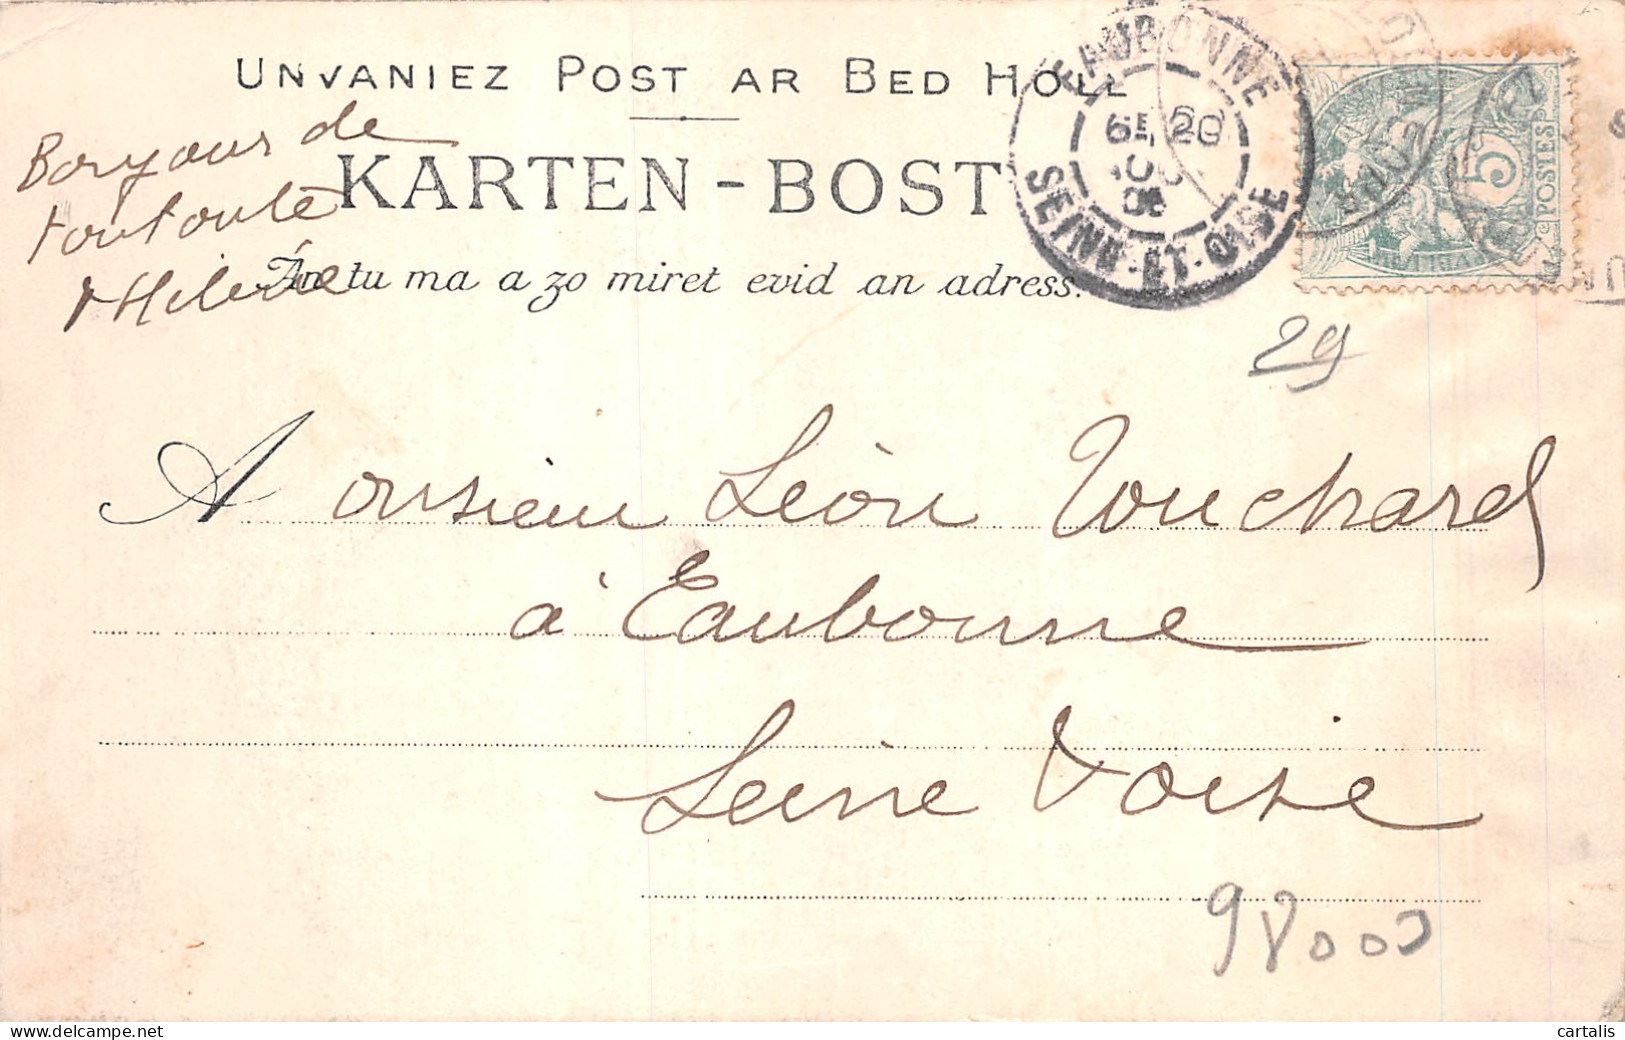 UNVANIEZ POST AR BED HOLL
KARTEN-BOST
An tu ma a zo miret evid an adress.
Bonjour de
toutoute
Hélène
EAUBONNE
SEINE-ET-OISE
5c POSTES
29
A onsieur Léon Touchard
à Eaubonne
Seine & oise
98000
cartalis
delcampe.net